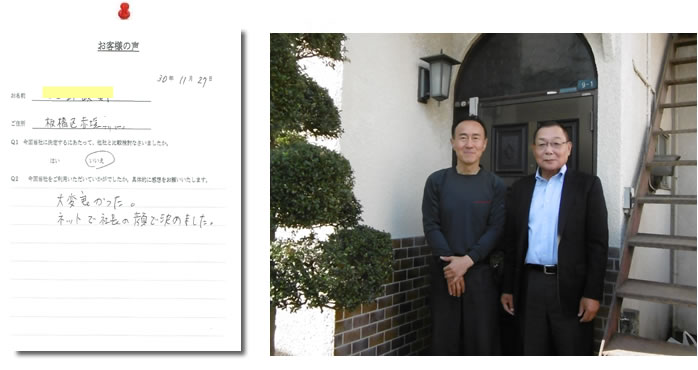 お客様の声
30年 11月 29日
お名前
ご住所 板橋区赤塚
Q1 今回当社に決定するにあたって、他社と比較検討なさいましたか。
はい いいえ
Q2 今回当社をご利用いただいていかがでしたか。具体的に感想をお願いいたします。
大変良かった。
ネットで社長の顔で決めました。
9-1